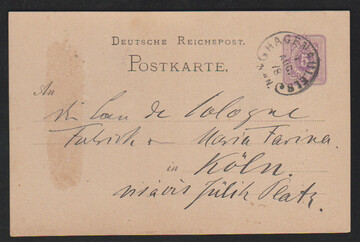 DEUTSCHE REICHSPOST.
POSTKARTE.
HAGENAU I. ELS
AUG
78
An
die Eau de Cologne
Fabrick Maria Farina
in Köln.
visàvis Jülich Platz.